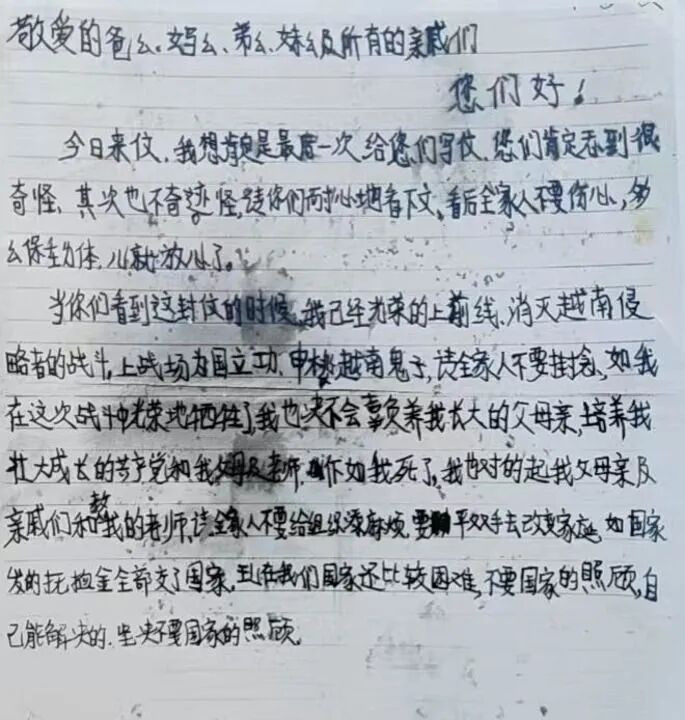 敬爱的爸么、妈么、弟么、妹么及所有的亲戚们
您们好！
今日来仪，我想肯定是最后一次给您们写仪，您们肯定看到很
奇怪、其次也不奇怪，请你们耐心地看下文，看后全家人不要伤心，多
么保重身体，儿就放心了。
当你们看到这封仪的时候，我已经光荣的上前线，消灭越南侵
略者的战斗，上战场为国立功，越南鬼子，请全家人不要挂念，如我
在这次战斗中光荣地牺牲了，我也决不会辜负养我长大的父母亲，培养我
壮大成长的共产党和我父母及老师，如我死了，我也对的起我父母亲及
亲戚们和教我的老师，请全家人不要给组织添麻烦，要双手去改变家庭，如国家
发的抚恤金全部交了国家，现在我们国家还比较困难，不要国家的照顾，自
己能解决的，坚决不要国家的照顾。